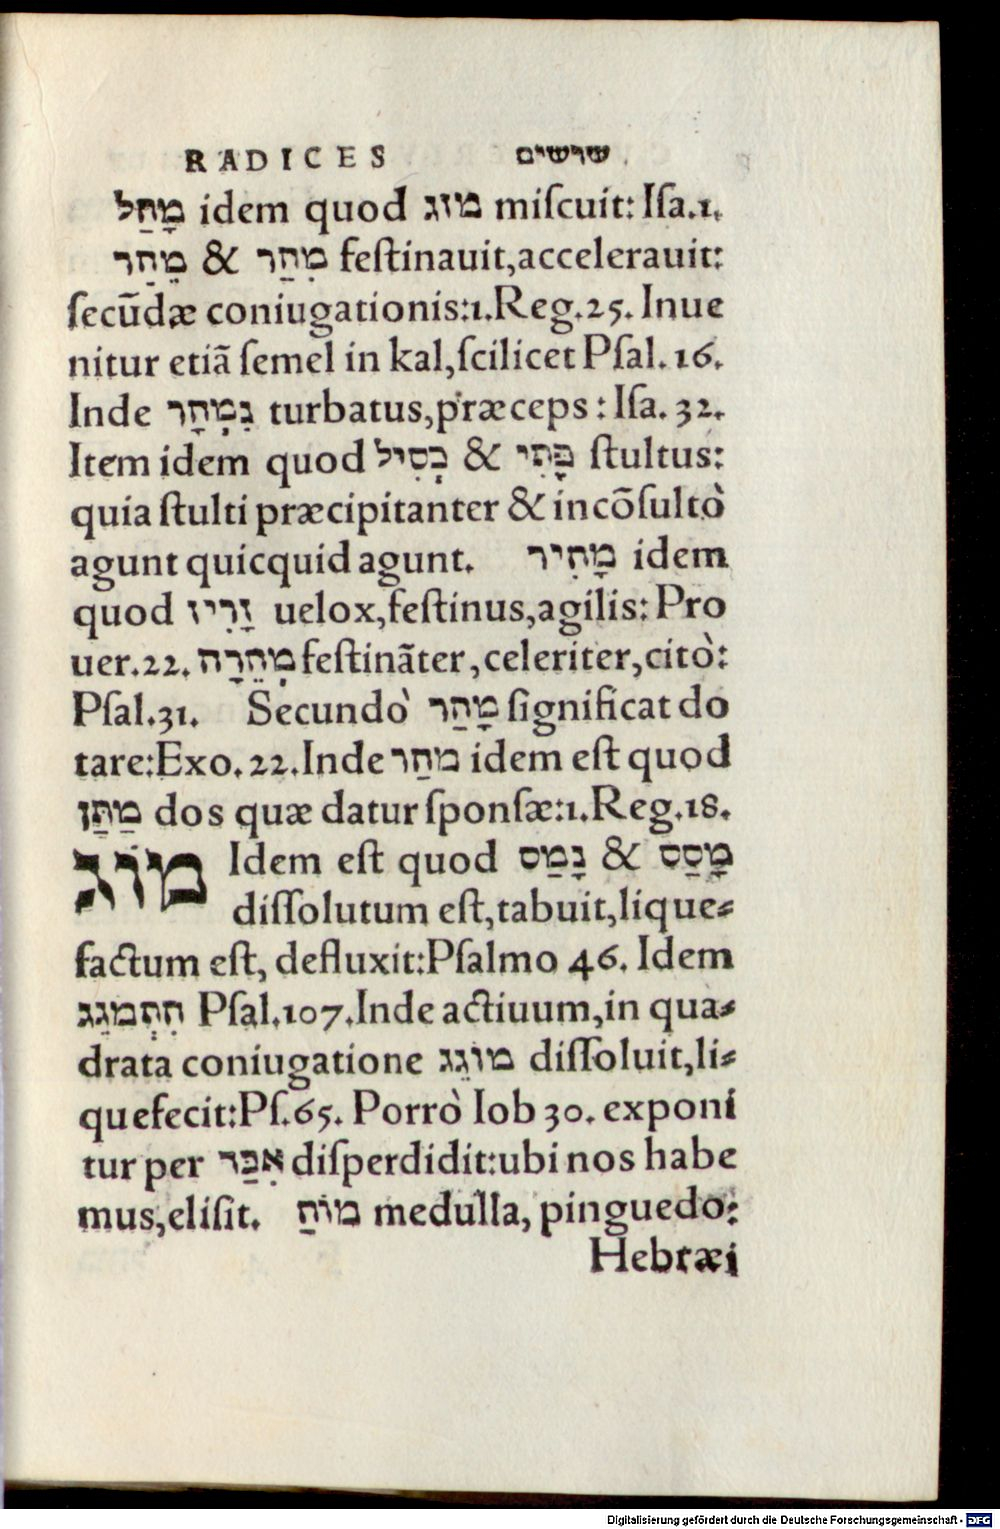 RADICES שרשים
מָהַל idem quod מזג miſcuit: Iſa.1.
מֵהַר & מִהַר feſtinauit,accelerauit:
ſecũdæ coniugationis:1.Reg.25. Inue
nitur etiã ſemel in kal,ſcilicet Pſal.16.
Inde נִמְהָר turbatus,præceps: Iſa.32.
Item idem quod כְסִיל & פָתִי ſtultus:
quia ſtulti præcipitanter & incõſultò
agunt quicquid agunt. מָהִיר idem
quod זָרִיז uelox,feſtinus,agilis: Pro
uer.22. מְהֵרָה feſtinãter,celeriter,citò:
Pſal.31. Secundò מָהַר ſignificat do
tare:Exo.22.Inde מהַר idem eſt quod
מַתַּן dos quæ datur ſponſæ:1.Reg.18.
מוֹג Idem eſt quod נָמַס & מָסַס
diſſolutum eſt,tabuit,lique⸗
factum eſt, defluxit:Pſalmo 46. Idem
הִתְמֹגֵג Pſal.107.Inde actiuum,in qua⸗
drata coniugatione מוֹגֵג diſſoluit,li⸗
quefecit:Pſ.65. Porrò Iob 30. exponi
tur per אִבַּר diſperdidit:ubi nos habe
mus,eliſit. מוֹחַ medulla, pinguedo:
Hebræi
Digitalisierung gefördert durch die Deutsche Forschungsgemeinschaft - DFG